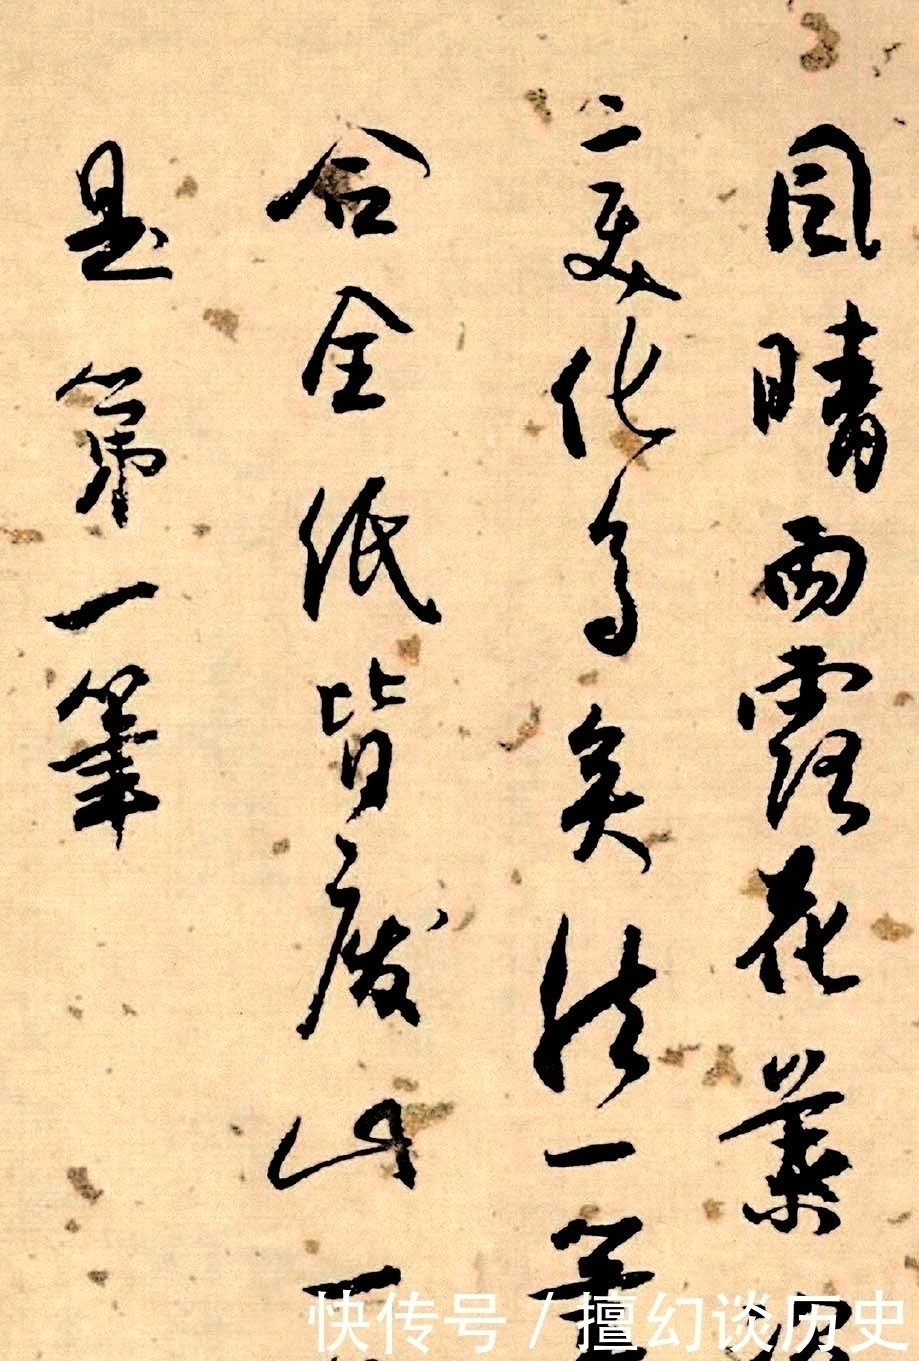 風晴雨露花葉
變化矣法一筆
合全紙皆廢此一
是第一筆
快传号 / 擅幻谈历史